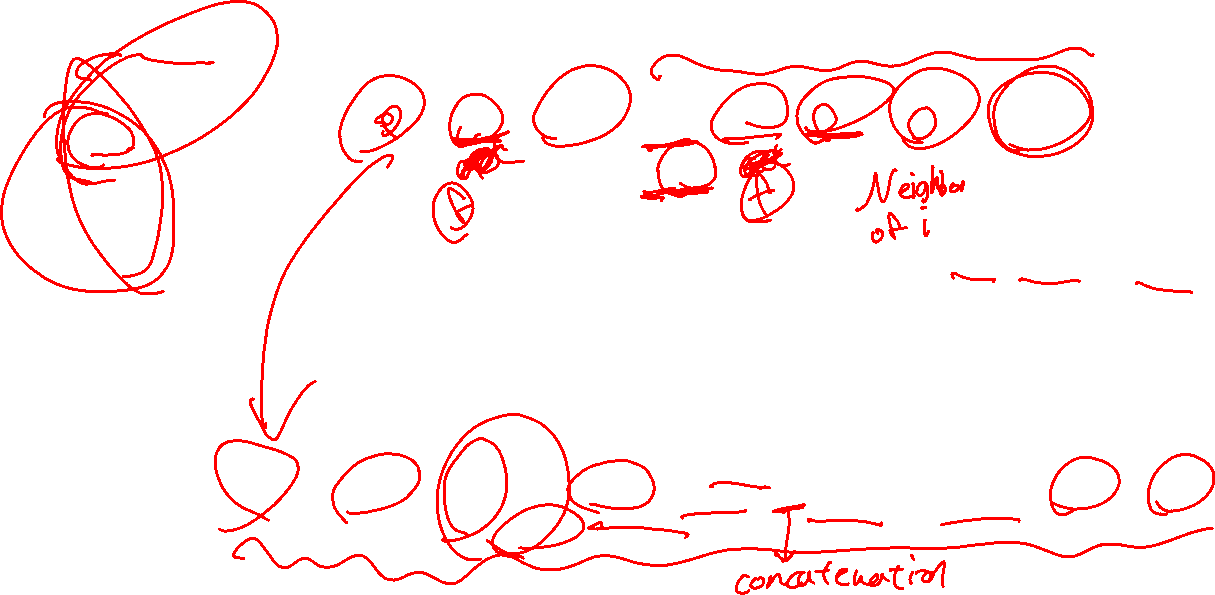 Neighbor
of i
concatenation